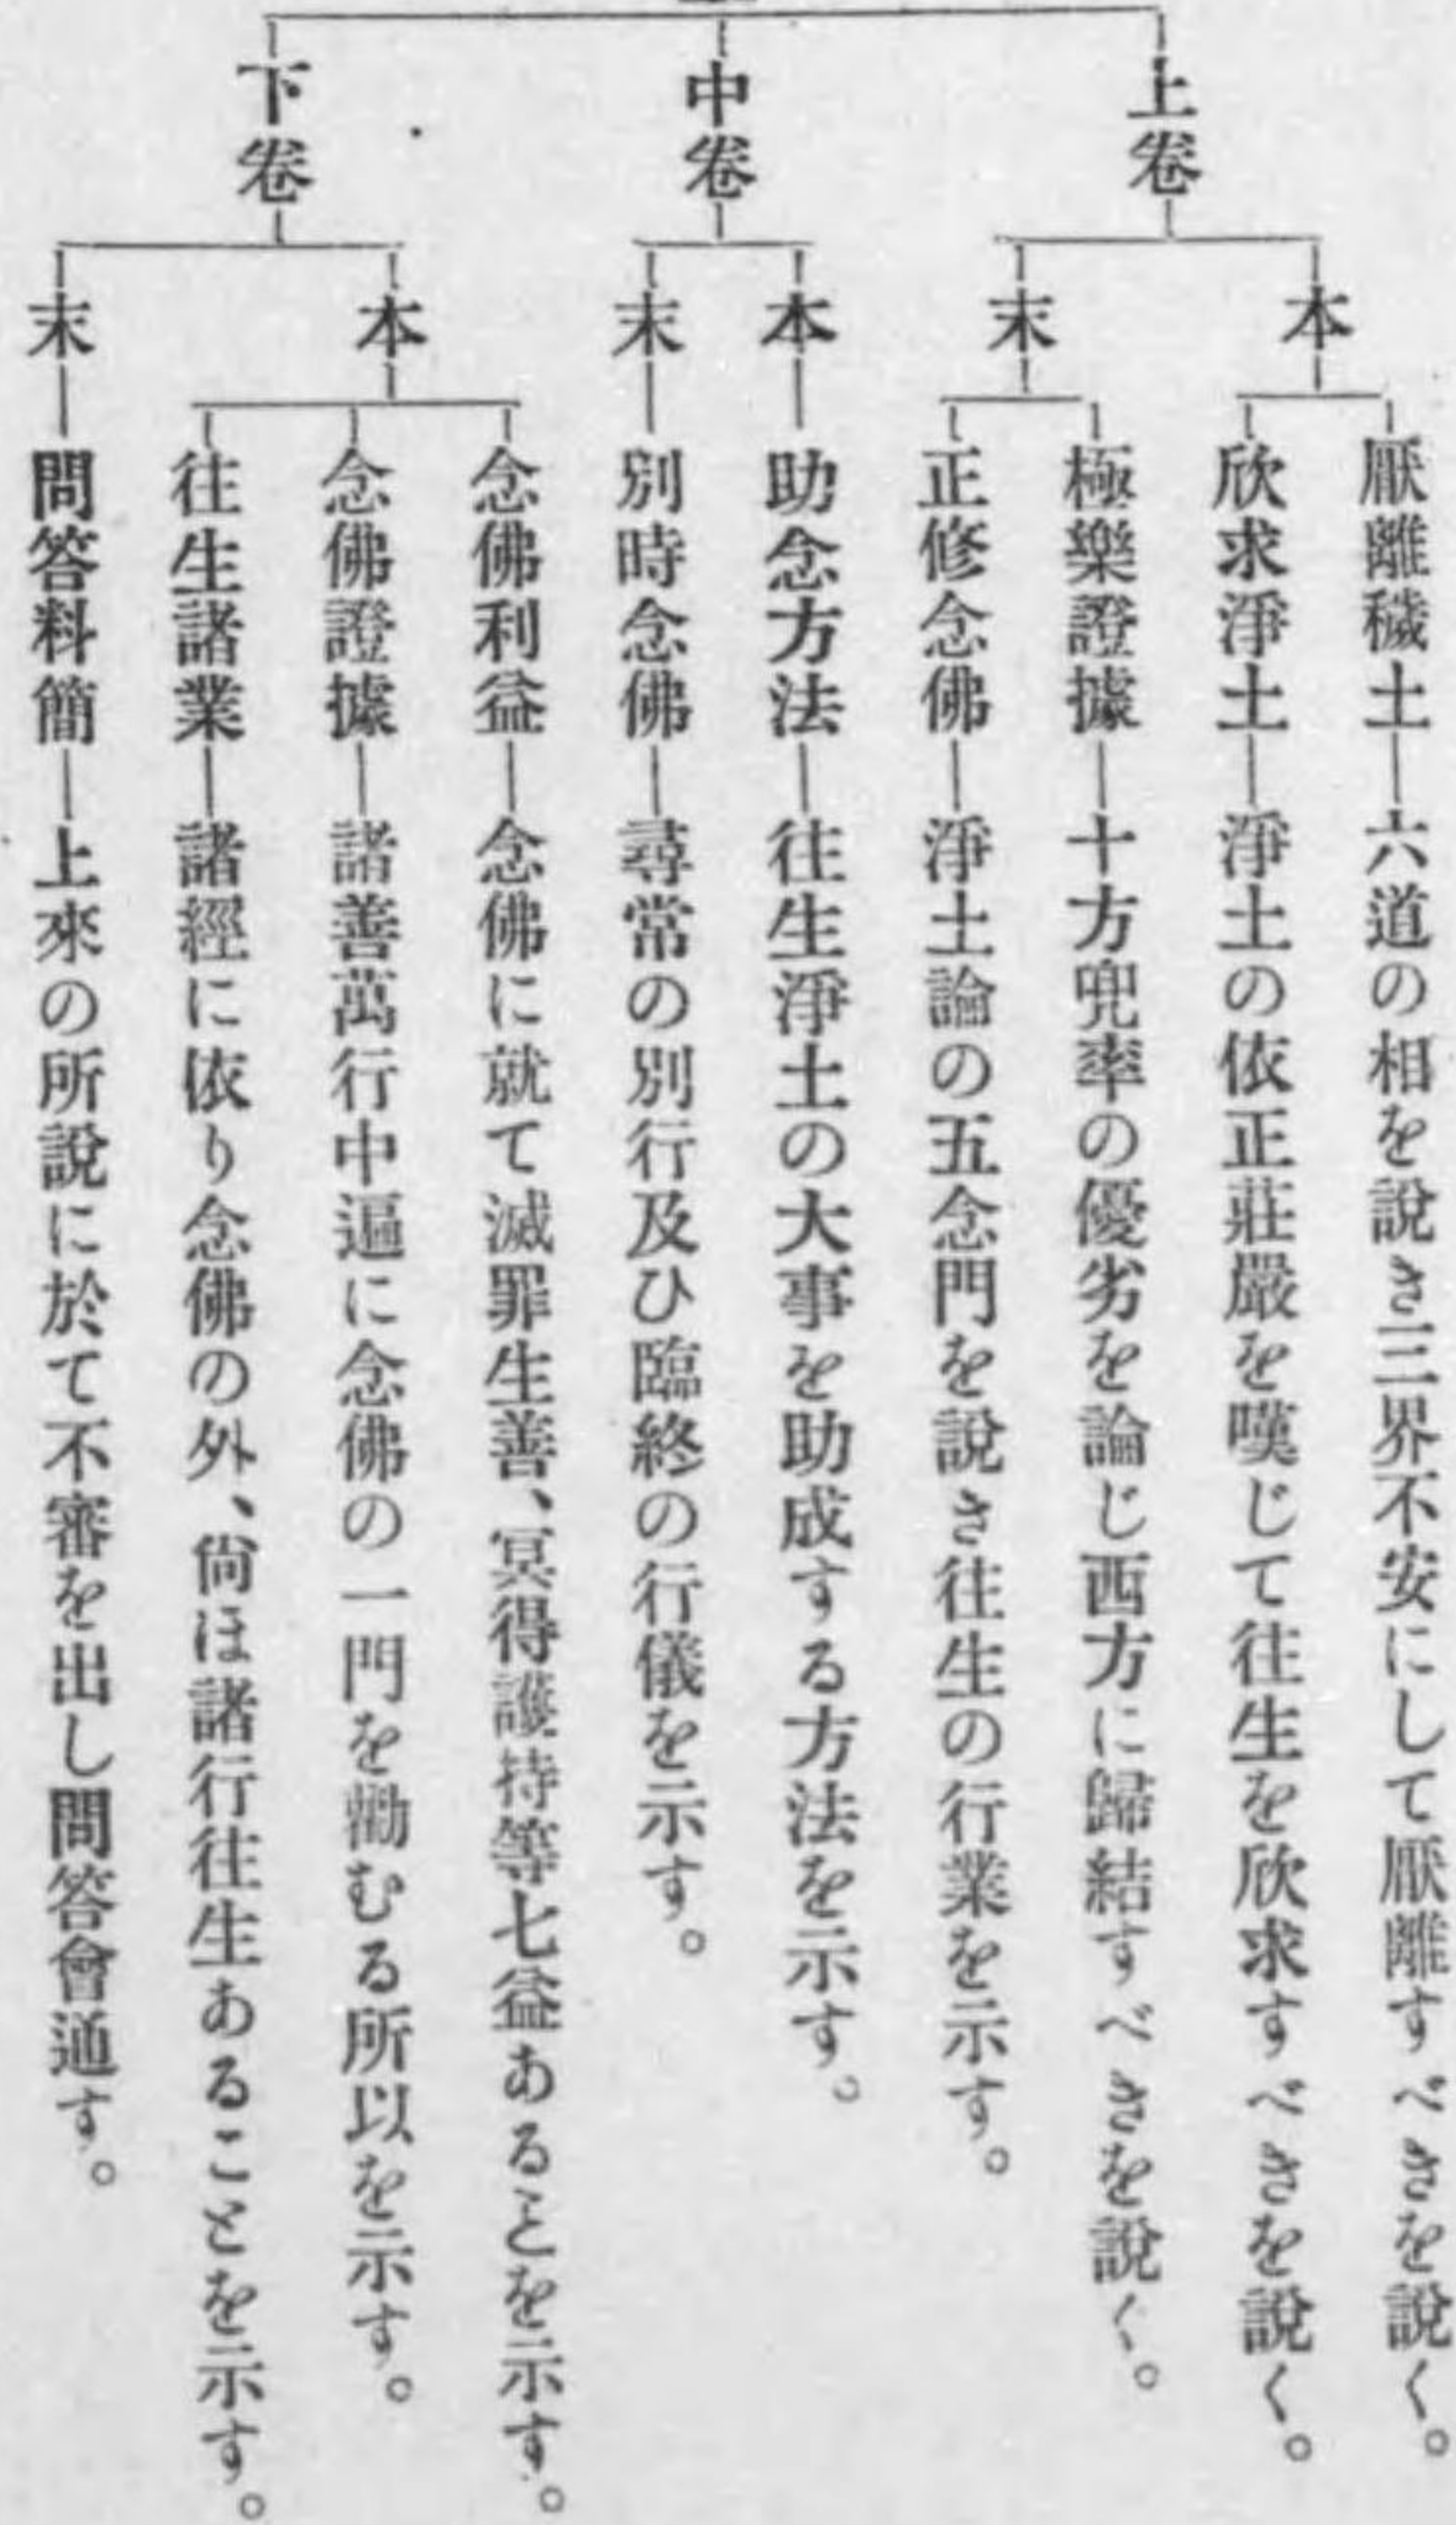 上卷
本
厭離穢土―六道の相を說き三界不安にして厭離すべきを說く。
欣求淨土―淨土の依正莊嚴を嘆じて往生を欣求すべきを說く。
末
極樂證據―十方兜率の優劣を論じ西方に歸結すべきを說く。
正修念佛―淨土論の五念門を說き往生の行業を示す。
中卷
本―助念方法―往生淨土の大事を助成する方法を示す。
末―別時念佛―尋常の別行及ひ臨終の行儀を示す。
下卷
本
念佛利益―念佛に就て滅罪生善、冥得護持等七益あることを示す。
念佛證據―諸善萬行中遍に念佛の一門を勸むる所以を示す。
往生諸業―諸經に依り念佛の外、尙ほ諸行往生あることを示す。
末―問答料簡―上來の所說に於て不審を出し問答會通す。